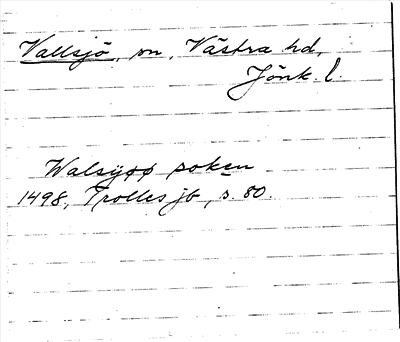 Vallsjö, sn, Västra hd,
Jönk. l.
Walsyøø soken
1498, Trolles jb, s. 80.